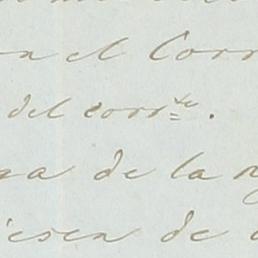 n el Corr
del corr.te
na de la
iesen de